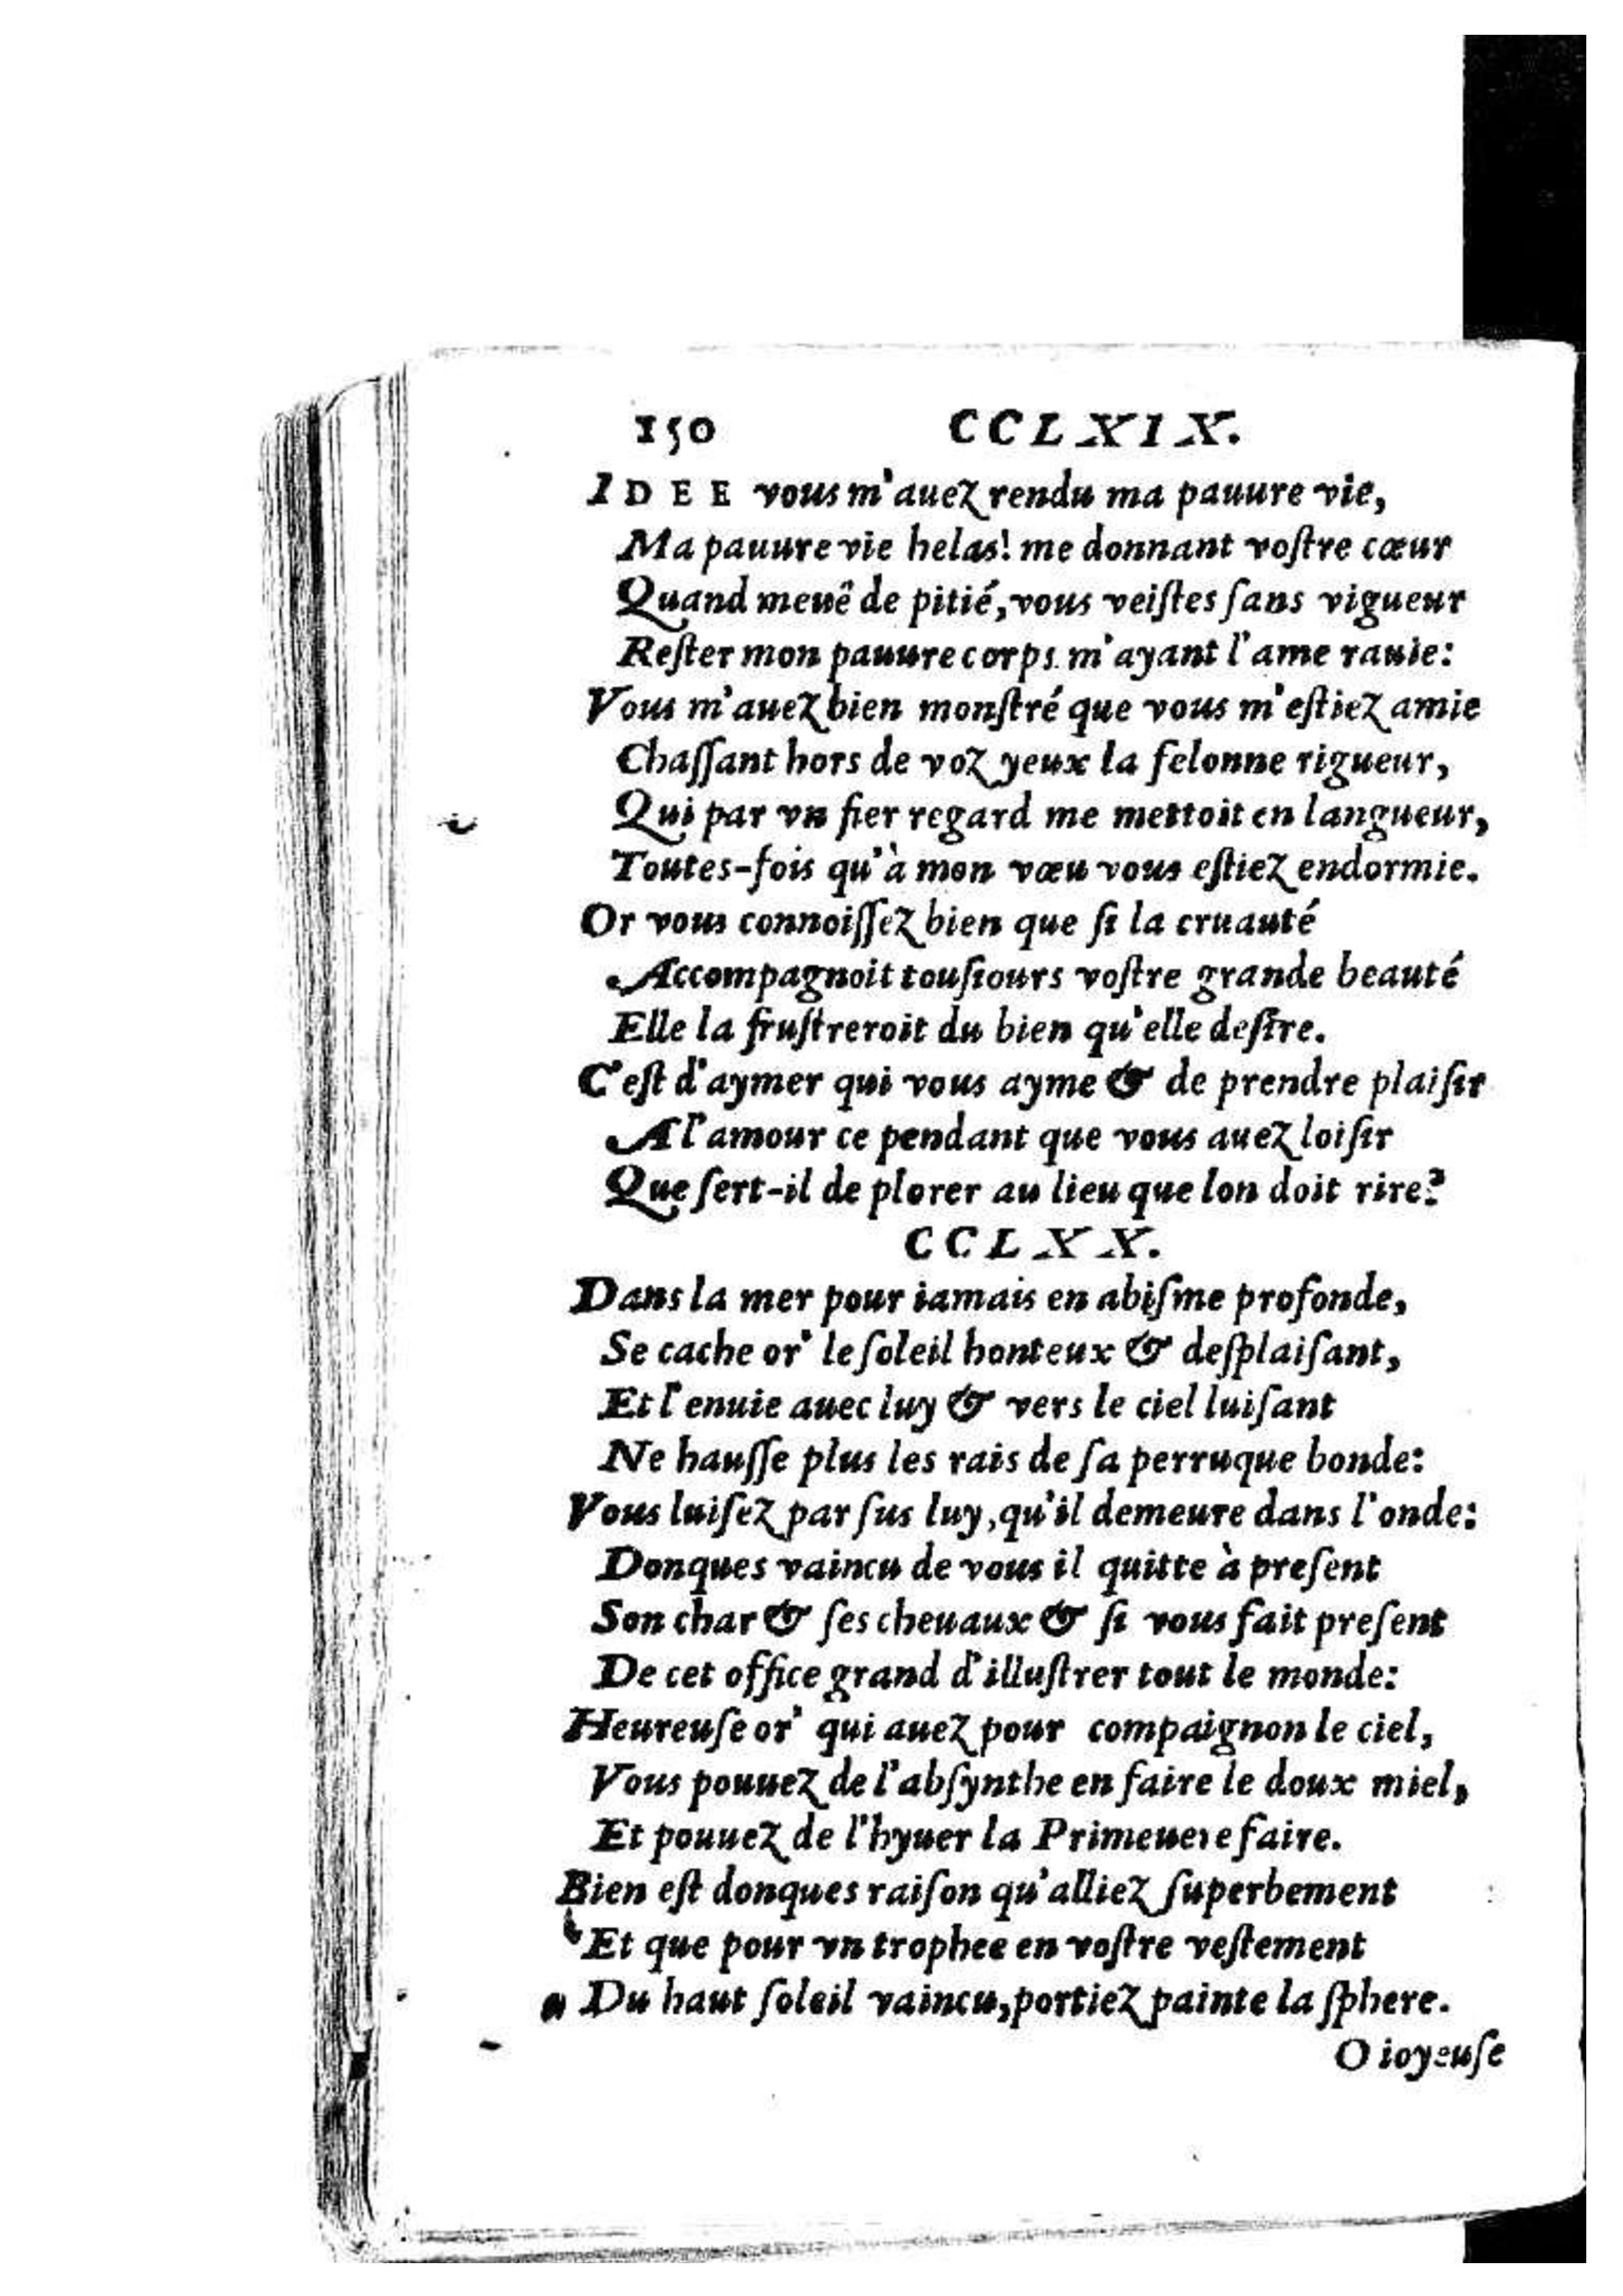 150 CCLXIX.
IDEE vous m'auez rendu ma pauure vie,
Ma pauure vie helas! me donnant voſtre cœur
Quand meuê de pitié, vous veiſtes ſans vigueur
Reſter mon pauure corps m'ayant l'ame rauie:
Vous m'auez bien monſtré que vous m'eſtiez amie
Chaſſant hors de voz yeux la felonne rigueur,
Qui par vn fier regard me mettoit en langueur,
Toutes-fois qu'à mon vœu vous eſtiez endormie.
Or vous connoiſſez bien que ſi la cruauté
Accompagnoit touſiours voſtre grande beauté
Elle la fruſtreroit du bien qu'elle deſire.
C'eſt d'aymer qui vous ayme & de prendre plaiſir
A l'amour ce pendant que vous auez loiſir
Que ſert-il de plorer au lieu que lon doit rire?
CCLXX.
Dans la mer pour iamais en abiſme profonde,
Se cache or' le ſoleil honteux & deſplaiſant,
Et l'enuie auec luy & vers le ciel luiſant
Ne hauſſe plus les rais de ſa perruque bonde:
Vous luiſez par ſus luy, qu'il demeure dans l'onde:
Donques vaincu de vous il quitte à preſent
Son char & ſes cheuaux & ſi vous fait preſent
De cet office grand d'illuſtrer tout le monde:
Heureuſe or' qui auez pour compaignon le ciel,
Vous pouuez de l'abſynthe en faire le doux miel,
Et pouuez de l'hyuer la Primeuere faire.
Bien eſt donques raiſon qu'alliez ſuperbement
Et que pour vn trophee en voſtre veſtement
Du haut ſoleil vaincu, portiez painte la ſphere.
O ioyeuſe